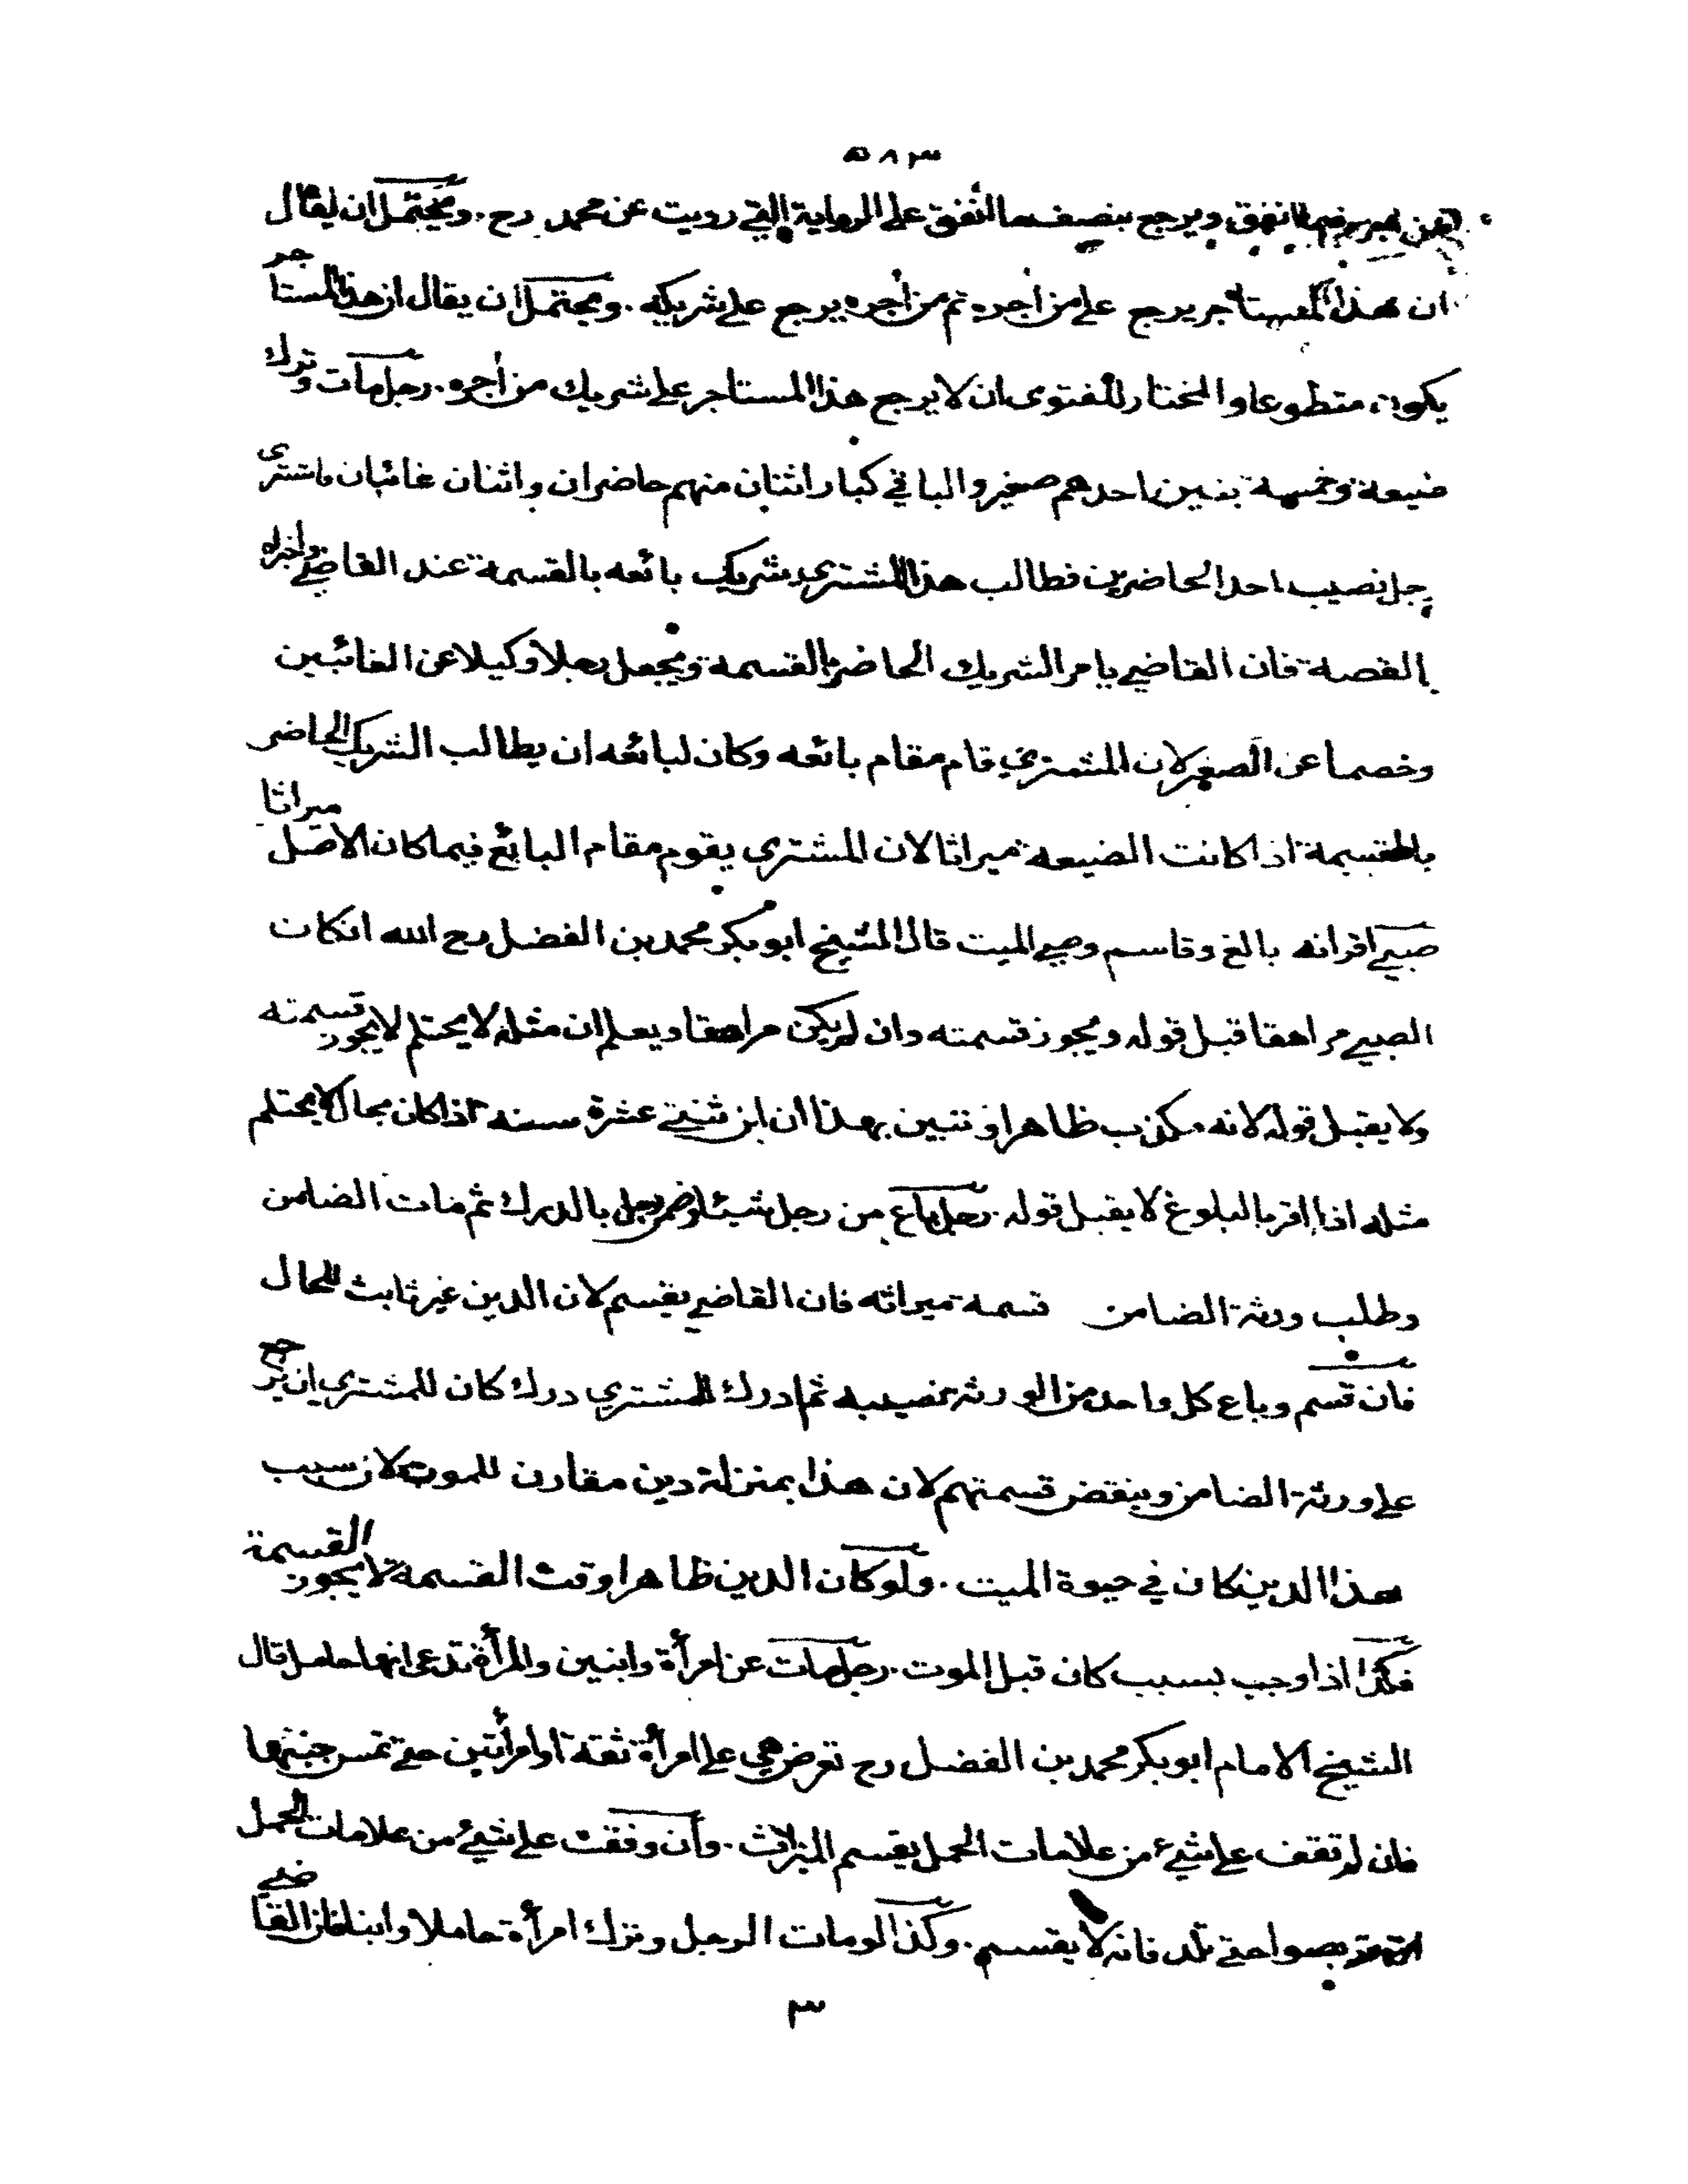 ٥٨٣
فيما انفق ويرجع بنصف ما انفق على الرواية التي رويت عن محمد رح. ويحتمل ان يقال
ان هذا المستاجر يرجع على من أجره ثم من أجره يرجع على شريكه. ويحتمل ان يقال ان هذا المستاجر
يكون متطوعا والمختار للفتوى ان لا يرجع هذا المستاجر على شريك من أجره. رجل مات وترك
ضيعة وخمسة بنين احدهم صغير والباقي كبار اثنان منهم حاضران واثنان غائبان فاشترى
رجل نصيب احد الحاضرين فطالب هذا المشتري شريك بائعه بالقسمة عند القاضي واخبراه
بالقصة فان القاضي يامر الشريك الحاضر بالقسمة ويجعل رجلا وكيلا عن الغائبين
وخصما عن الصغير لان المشتري قام مقام بائعه وكان لبائعه ان يطالب الشريك الحاضر
بالقسمة اذا كانت الضيعة ميراثا لان المشتري يقوم مقام البائع فيما كان الاصل ميراثا
صبي اقر انه بالغ وقاسم وصي الميت قال الشيخ ابو بكر محمد بن الفضل رح الله انكان
الصبي مراهقا قبل قوله ويجوز قسمته وان لم يكن مراهقا ويعلم ان مثله لا يحتلم لا يجوز قسمته
ولا يقبل قوله لانه مكذب ظاهرا وتبين بهذا ان ابن ثنتي عشرة سنة اذا كان بحال لا يحتلم
مثله اذا اقر بالبلوغ لا يقبل قوله. رجل باع من رجل شيئا وضمن رجل بالدرك ثم مات الضامن
وطلب ورثة الضامن قسمة ميراثه فان القاضي يقسم لان الدين غير ثابت للحال
فان قسم وباع كل واحد من الورثة نصيبه ثم ادرك المشتري درك كان للمشتري ان يرجع
على ورثة الضامن وينقض قسمتهم لان هذا بمنزلة دين مقارن للموت لان سبب
هذا الدين كان في حيوة الميت. ولو كان الدين ظاهرا وقت القسمة لا يجوز القسمة
فكذا اذا وجب بسبب كان قبل الموت. رجل مات عن امرأة وابنين والمرأة تدعى انها حامل قال
الشيخ الامام ابو بكر محمد بن الفضل رح تعرض هي على امرأة ثقة او امرأتين حتى تمس جنبها
فان لم تقف على شيء من علامات الحمل يقسم الميراث. وان وقفت على شيء من علامات الحمل
تربصوا حتى تلد فانه لا يقسم. وكذا لو مات الرجل وترك امرأة حاملا وابنا فان القاضي
٣